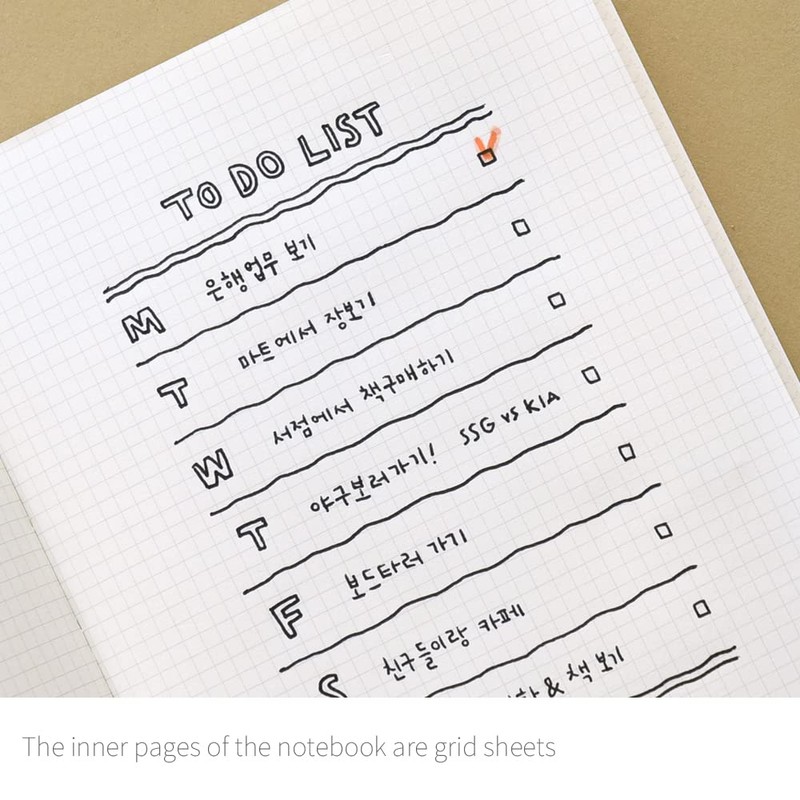 TO DO LIST
M 은행업무 보기
T 마트에서 장보기
W 서점에서 책구매하기
T 야구보러가기! SSG vs KIA
F 보드타러 가기
S 친구들이랑 카페
& 책 보기
The inner pages of the notebook are grid sheets